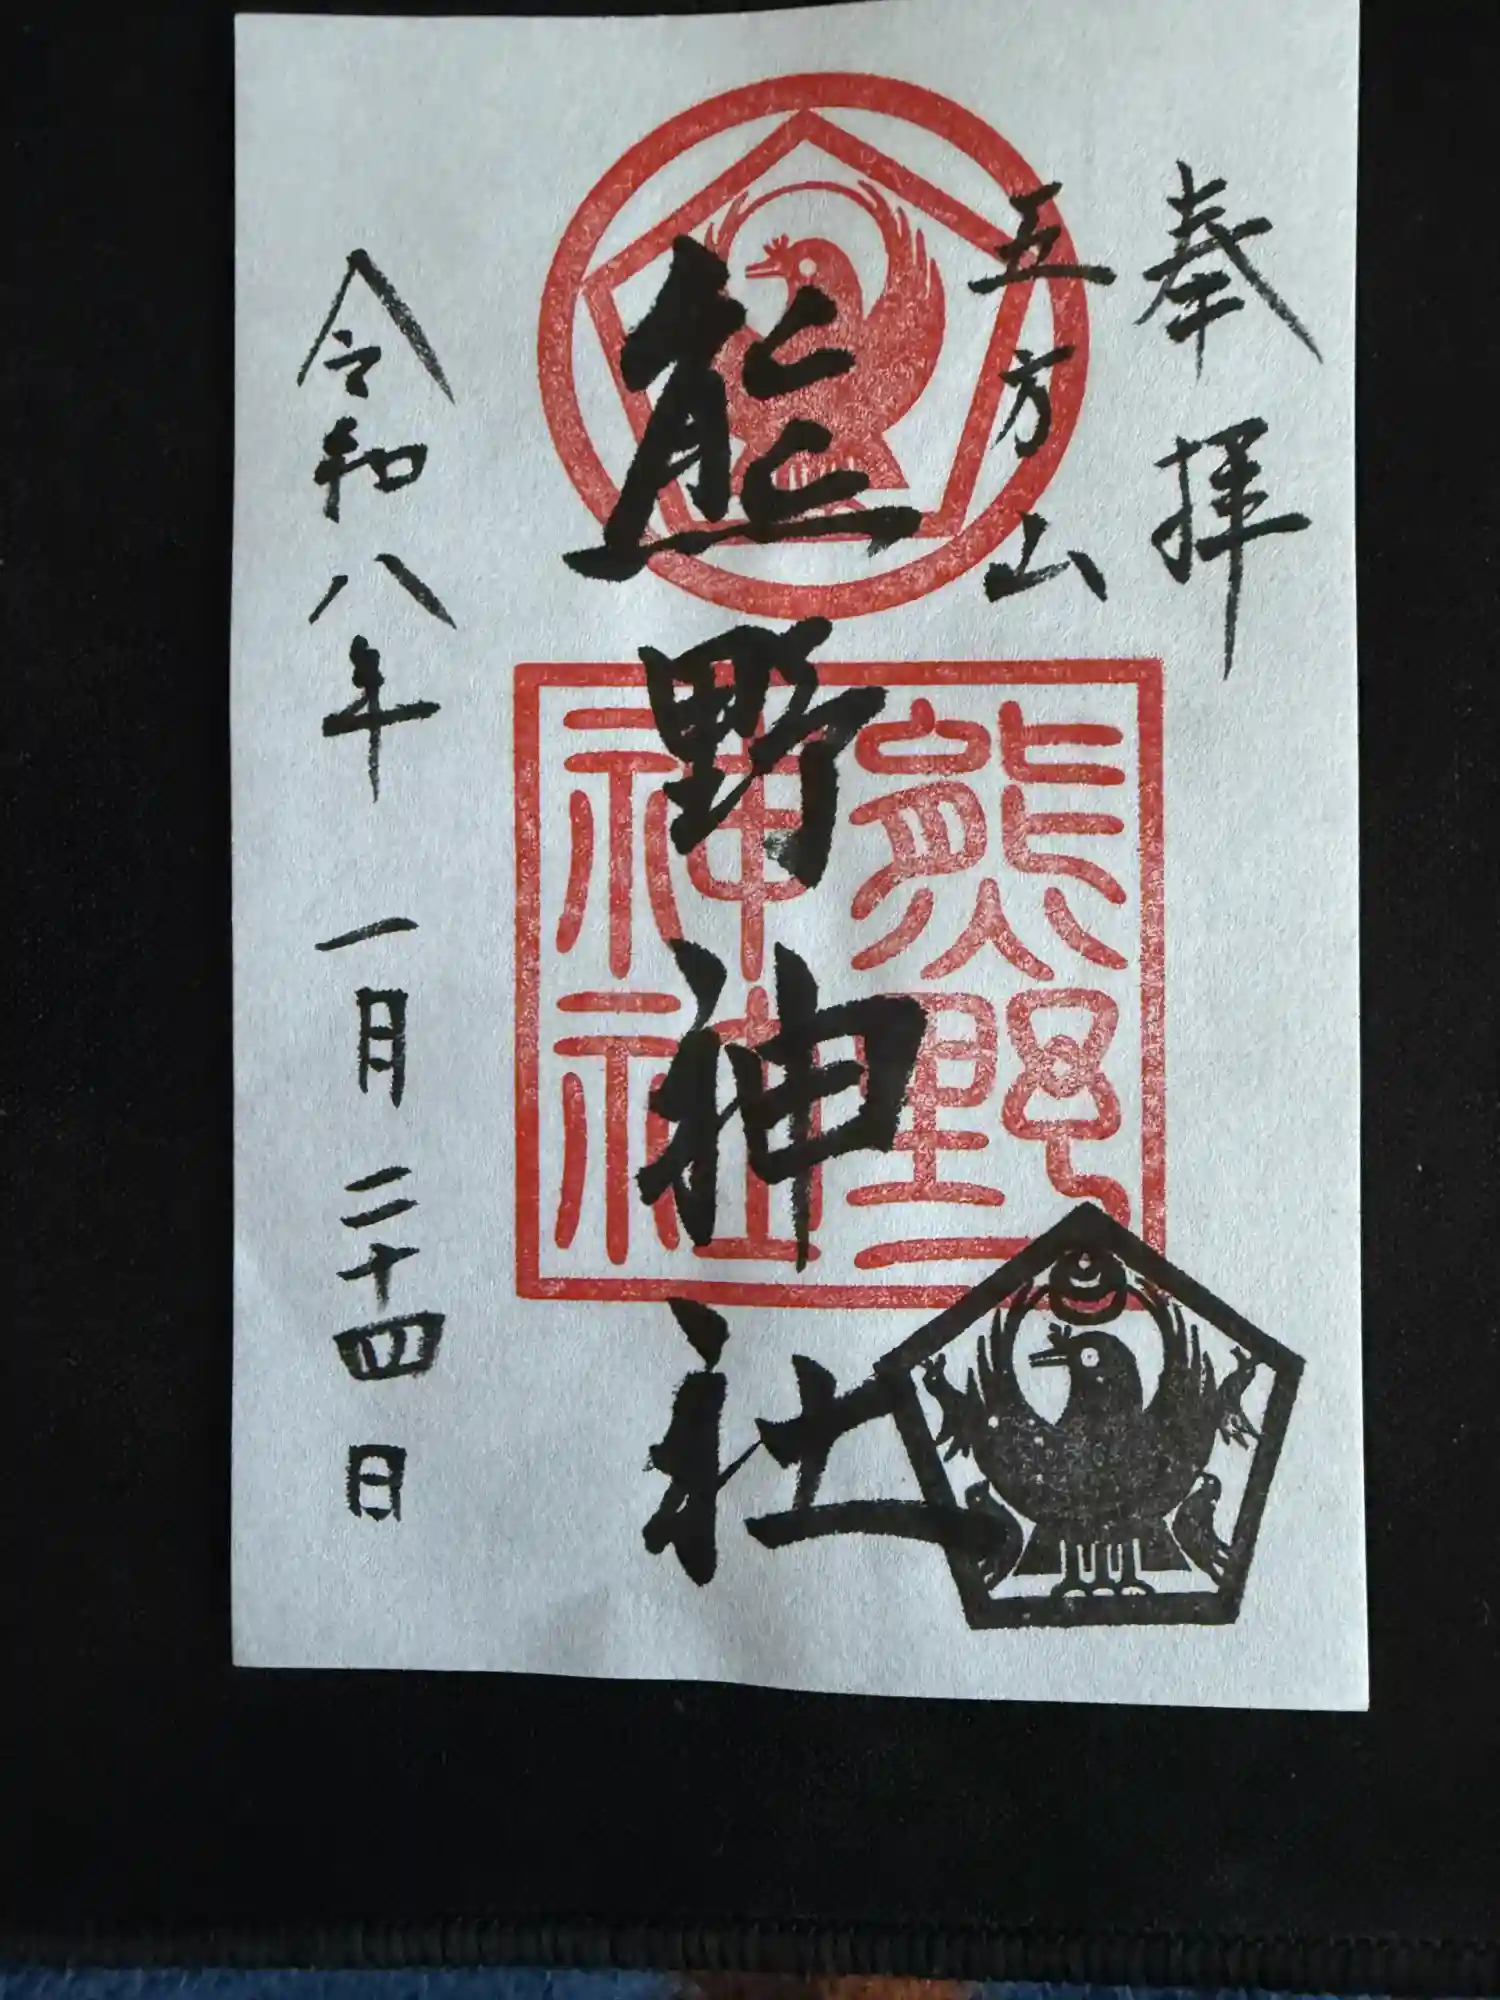 奉拝
五方山
熊野神社
熊野
神社
令和八年一月二十四日